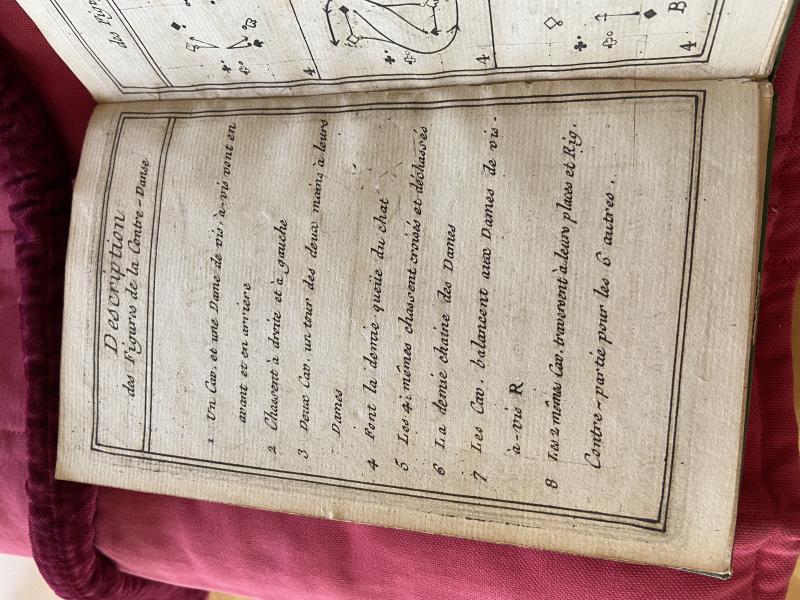 Description
des Figures de la Contre-Danse
1 Un Cav. et une Dame de vis-à-vis vont en
avant et en arriere
2 Chassent à droite et à gauche
3 Deux Cav. un tour des deux mains à leurs
Dames
4 Font la demie queüe du chat
5 Les 4 mêmes chassent croisés et déchassés
6 La demie chaine des Dames
7 Les Cav. balancent aux Dames de vis-
à-vis R
8 Les 2 mêmes Cav. traversent à leurs places et Rig.
Contre-partie pour les 6 autres.
des
4
4
4
B